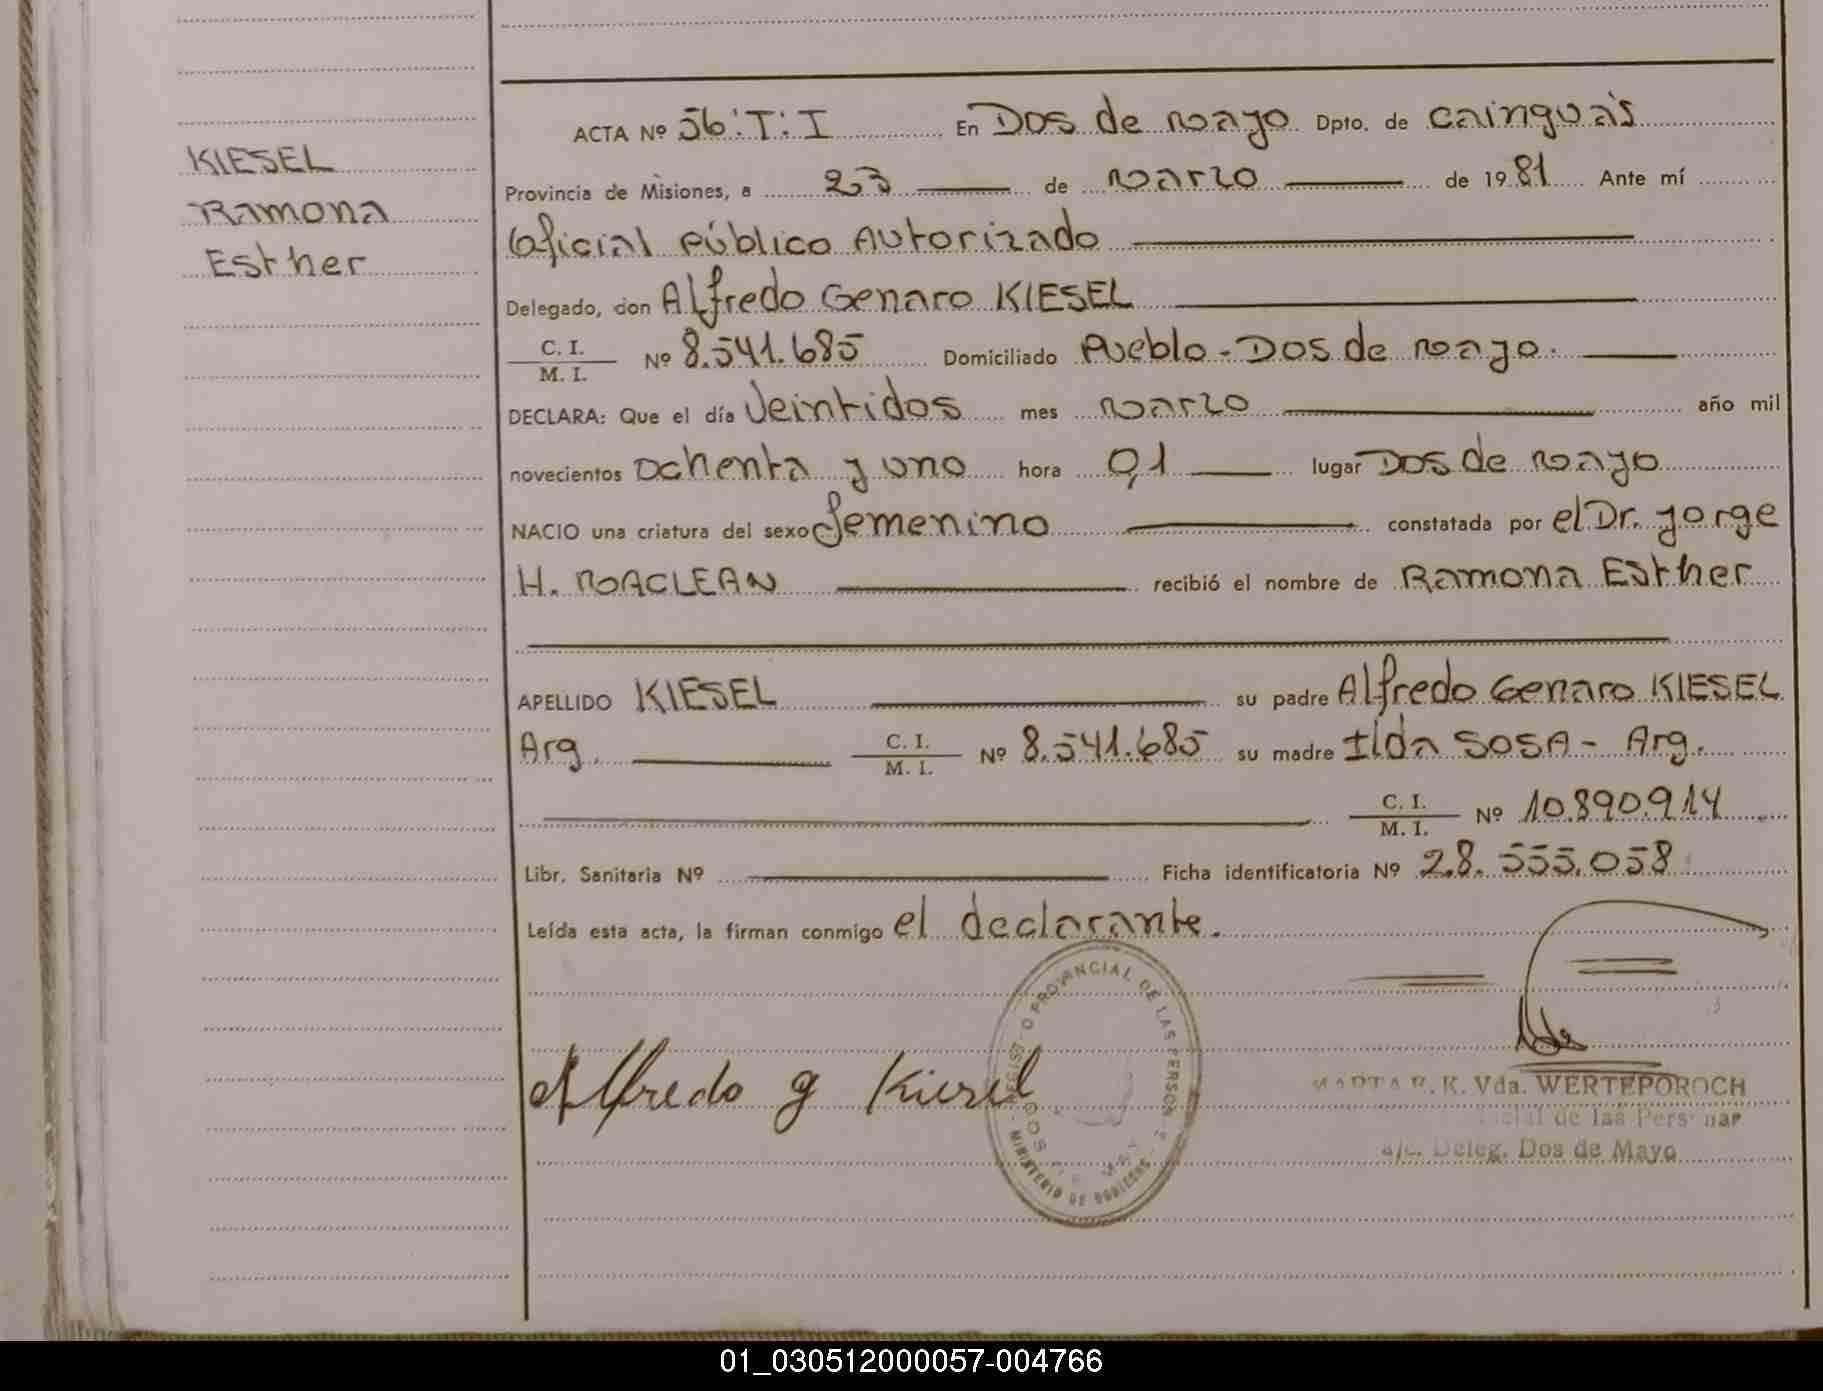 KIESEL
Ramona
Esther
ACTA Nº 56:T:I En Dos de mayo Dpto. de cainguás
Provincia de Misiones, a 23 de marzo de 1981 Ante mí
Oficial Público Autorizado
Delegado, don Alfredo Genaro KIESEL
C. I.
M. I. Nº 8.541.685 Domiciliado Pueblo - Dos de mayo.
DECLARA: Que el día Veintidos mes marzo año mil
novecientos ochenta y uno hora 01 lugar Dos de mayo
NACIO una criatura del sexo femenino constatada por el Dr. Jorge
H. MACLEAN recibió el nombre de Ramona Esther
APELLIDO KIESEL su padre Alfredo Genaro KIESEL
Arg. C. I. M. I. Nº 8.541.685 su madre Ilda SOSA - Arg.
C. I. M. I. Nº 10.890.914
Libr. Sanitaria Nº Ficha identificatoria Nº 28.555.058
Leída esta acta, la firman conmigo el declarante.
REGISTRO PROVINCIAL DE LAS PERSONAS
DOS DE MAYO
MINISTERIO DE GOBIERNO
Alfredo g Kiesel
MARTA R. K. Vda. WERTEPOROCH
de las Personas
a/c. Deleg. Dos de Mayo
01_030512000057-004766